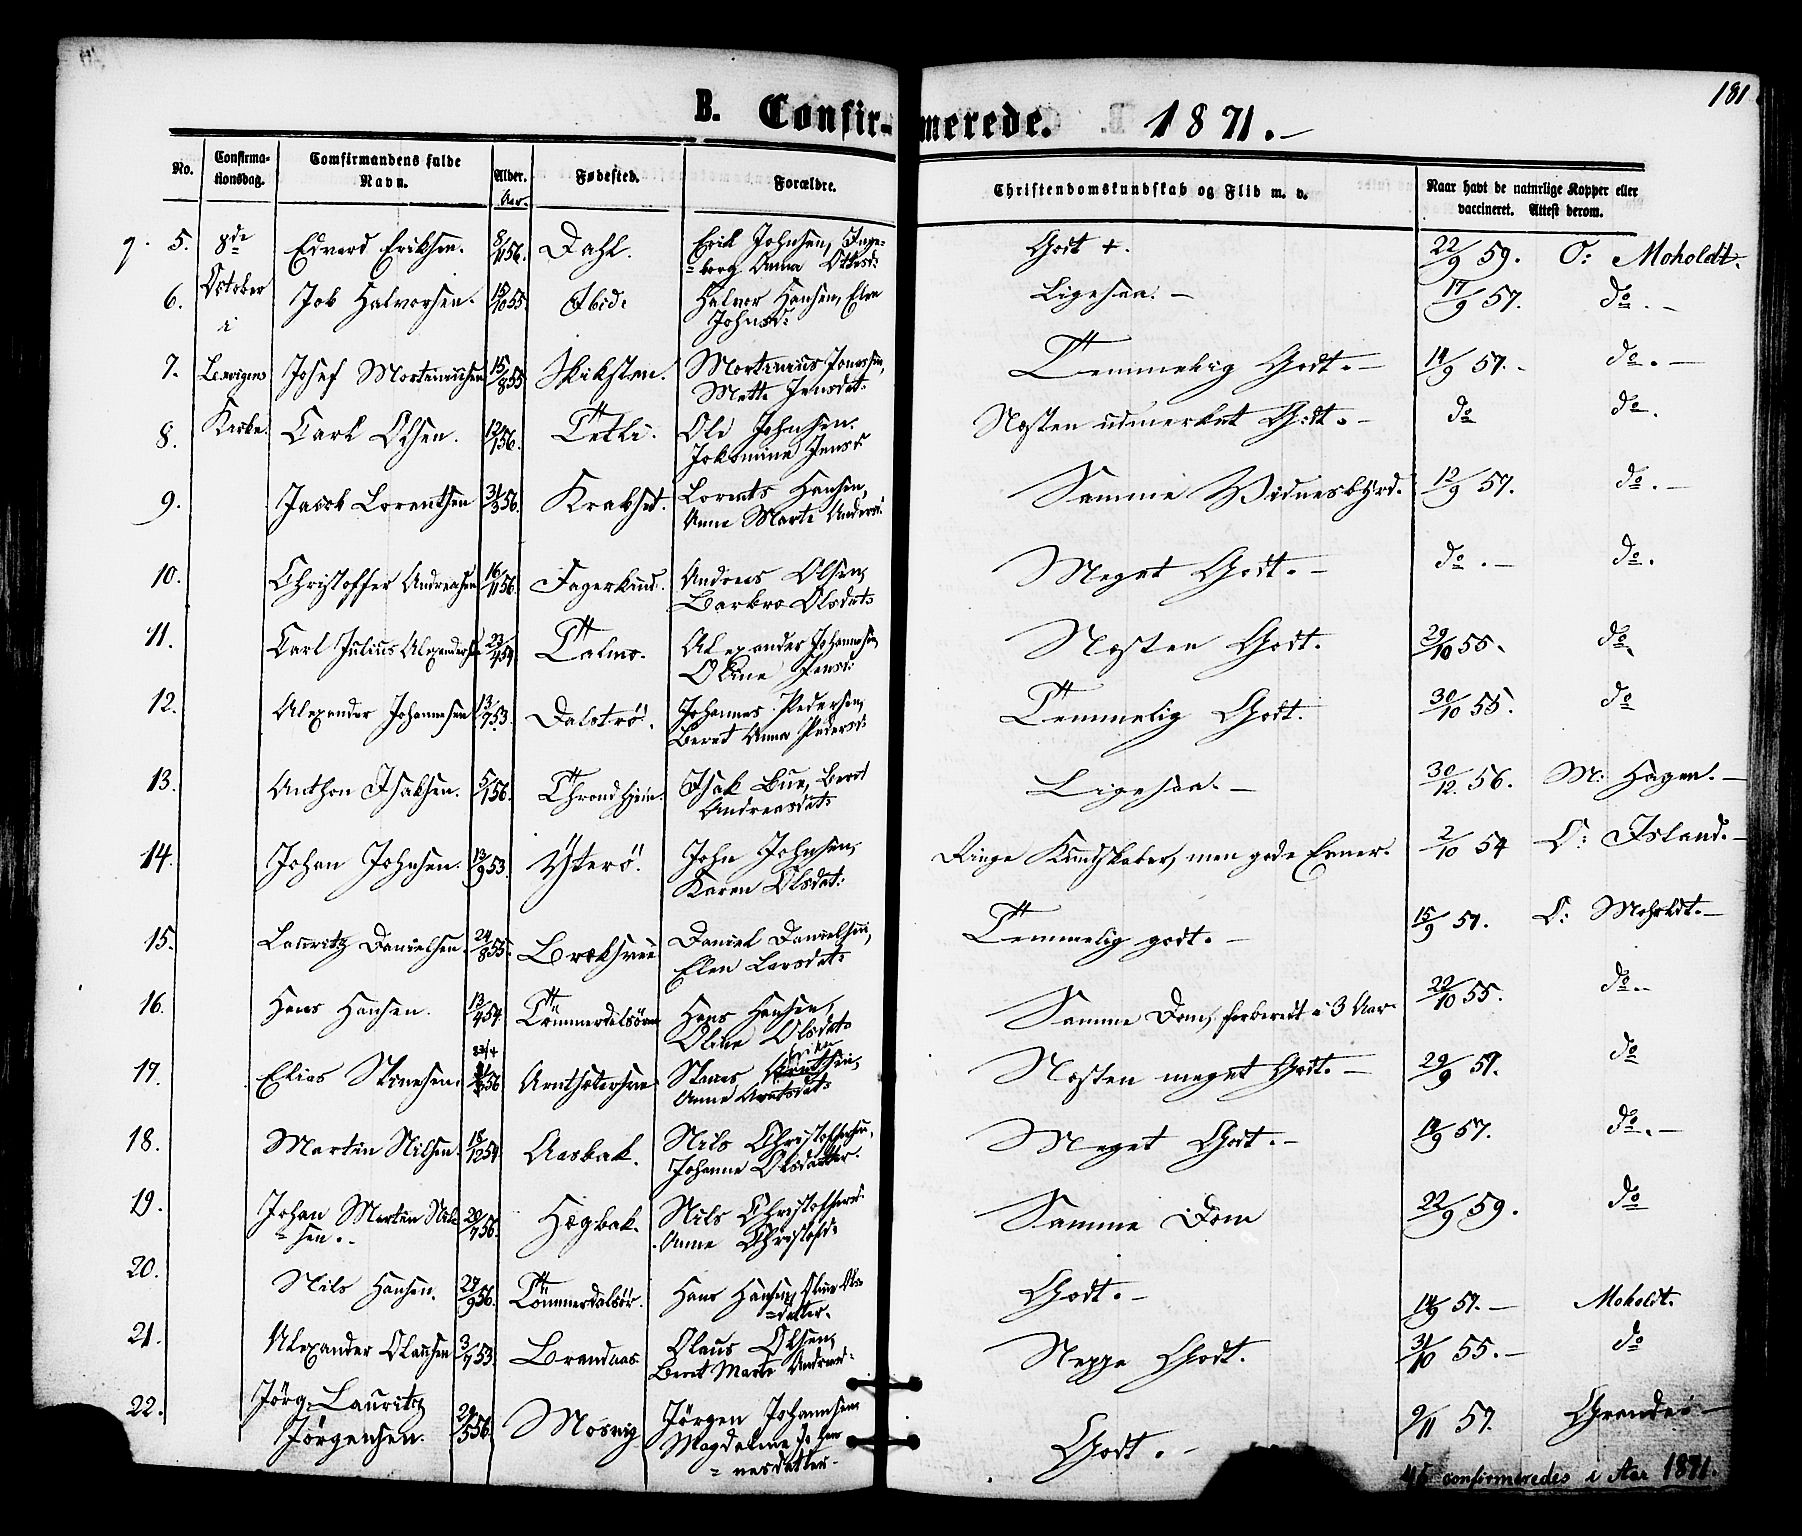 181
B. Confirmerede. 1871.
No.
Confirmationsdag.
Comfirmandens fulde Navn.
Alder. Aar.
Fødested.
Forældre.
Christendomskundskab og Flid m. v.
Naar havt de naturlige Kopper eller vaccineret. Attest derom.
5. 8de October i Lexvigens Kirke. Edvard Eriksen. 8/11 56. Dahl. Erik Johnsen, Ingeborg Anna Godt +. 22/9 59. O: Moholdt.
6. Job Halvorsen. 18/10 55. Ibid: Halvor Hansen, Elen Johnsd: Ligesaa. 17/9 57. do.
7. Josef Martinussen 15/8 55 Martinius Jonassen, Mette Jensdat: Temmelig Godt. 14/9 57. do.
8. Carl Olsen. 12/1 56. Tetli. Ole Johnsen. Jokomine Jensd: Næsten udmerket Godt. do do.
9. Jacob Lorentsen 3/3 56. Krakset. Lorents Hansen, Anne Marte Andersd: Samme Vidnesbyrd. 12/9 57. do.
10. Christoffer Andreasen 16/11 56. Fagerlund. Andreas Olsen, Barbro Olsdat: Meget Godt. do. do.
11. Carl Julius Alexandersen 23/4 54 Talmo. Alexander Johannesen, Oline Jensd: Næsten Godt. 29/10 55. do.
12. Alexander Johannesen 13/7 53. Dalstrø. Johannes Pedersen, Beret Anna Pedersd: Temmelig Godt. 30/10 55. do
13. Anthon Isaksen. 5/1 56. Throndhjem. Isak Bue, Beret Andreasdat: Ligesaa. 30/12. 56. M: Hagen.
14. Johan Johnsen. 13/9 53. Ytterø. John Johnsen, Karen Olsdat: Ringe Kundskaber, men gode Evner. 2/10 54 O: Island.
15. Lauritz Danielsen. 24/8 55. Daniel Danielsen, Elen Larsdat: Temmelig godt. 15/9 57. O: Moholdt.
16. Hans Hansen. 13/4 54 Tømmerdalsøren Hans Hansen, Oline Olsdat: Samme Dom, forberedt i 3 Aar. 22/10 55. do.
17. Elias Stinesen. Anne Arntsdat: Næsten meget Godt. 29/9 57. do
18. Martin Nilsen. 18/12 54 Aasbak. Nils Christoffersen, Johanne Olsdatter. Meget Godt. 14/9 57. do.
19. Johan Martin Nilssen. 20/7 56. Hegbak. Nils Christoffers: Anne Christofd: Samme Dom 22/9 59. do
20. Nils Hansen. 27/9 56. Tømmerdalsør. Hans Hansen, Oline Olsdatter. Godt. 14/9 57. Moholdt.
21. Alexander Olaussen 3/7 53. Brandaas Olaus Olsen, Beret Marte Neppe Godt. 31/10 55. do
22. Jørg: Lauritz Jørgensen. 29/5 56. Mosvig Jørgen Johannesen Magdalene Johannesdatter. Godt. 9/11 57. Grande:
45 confirmeredes i Aar 1871.